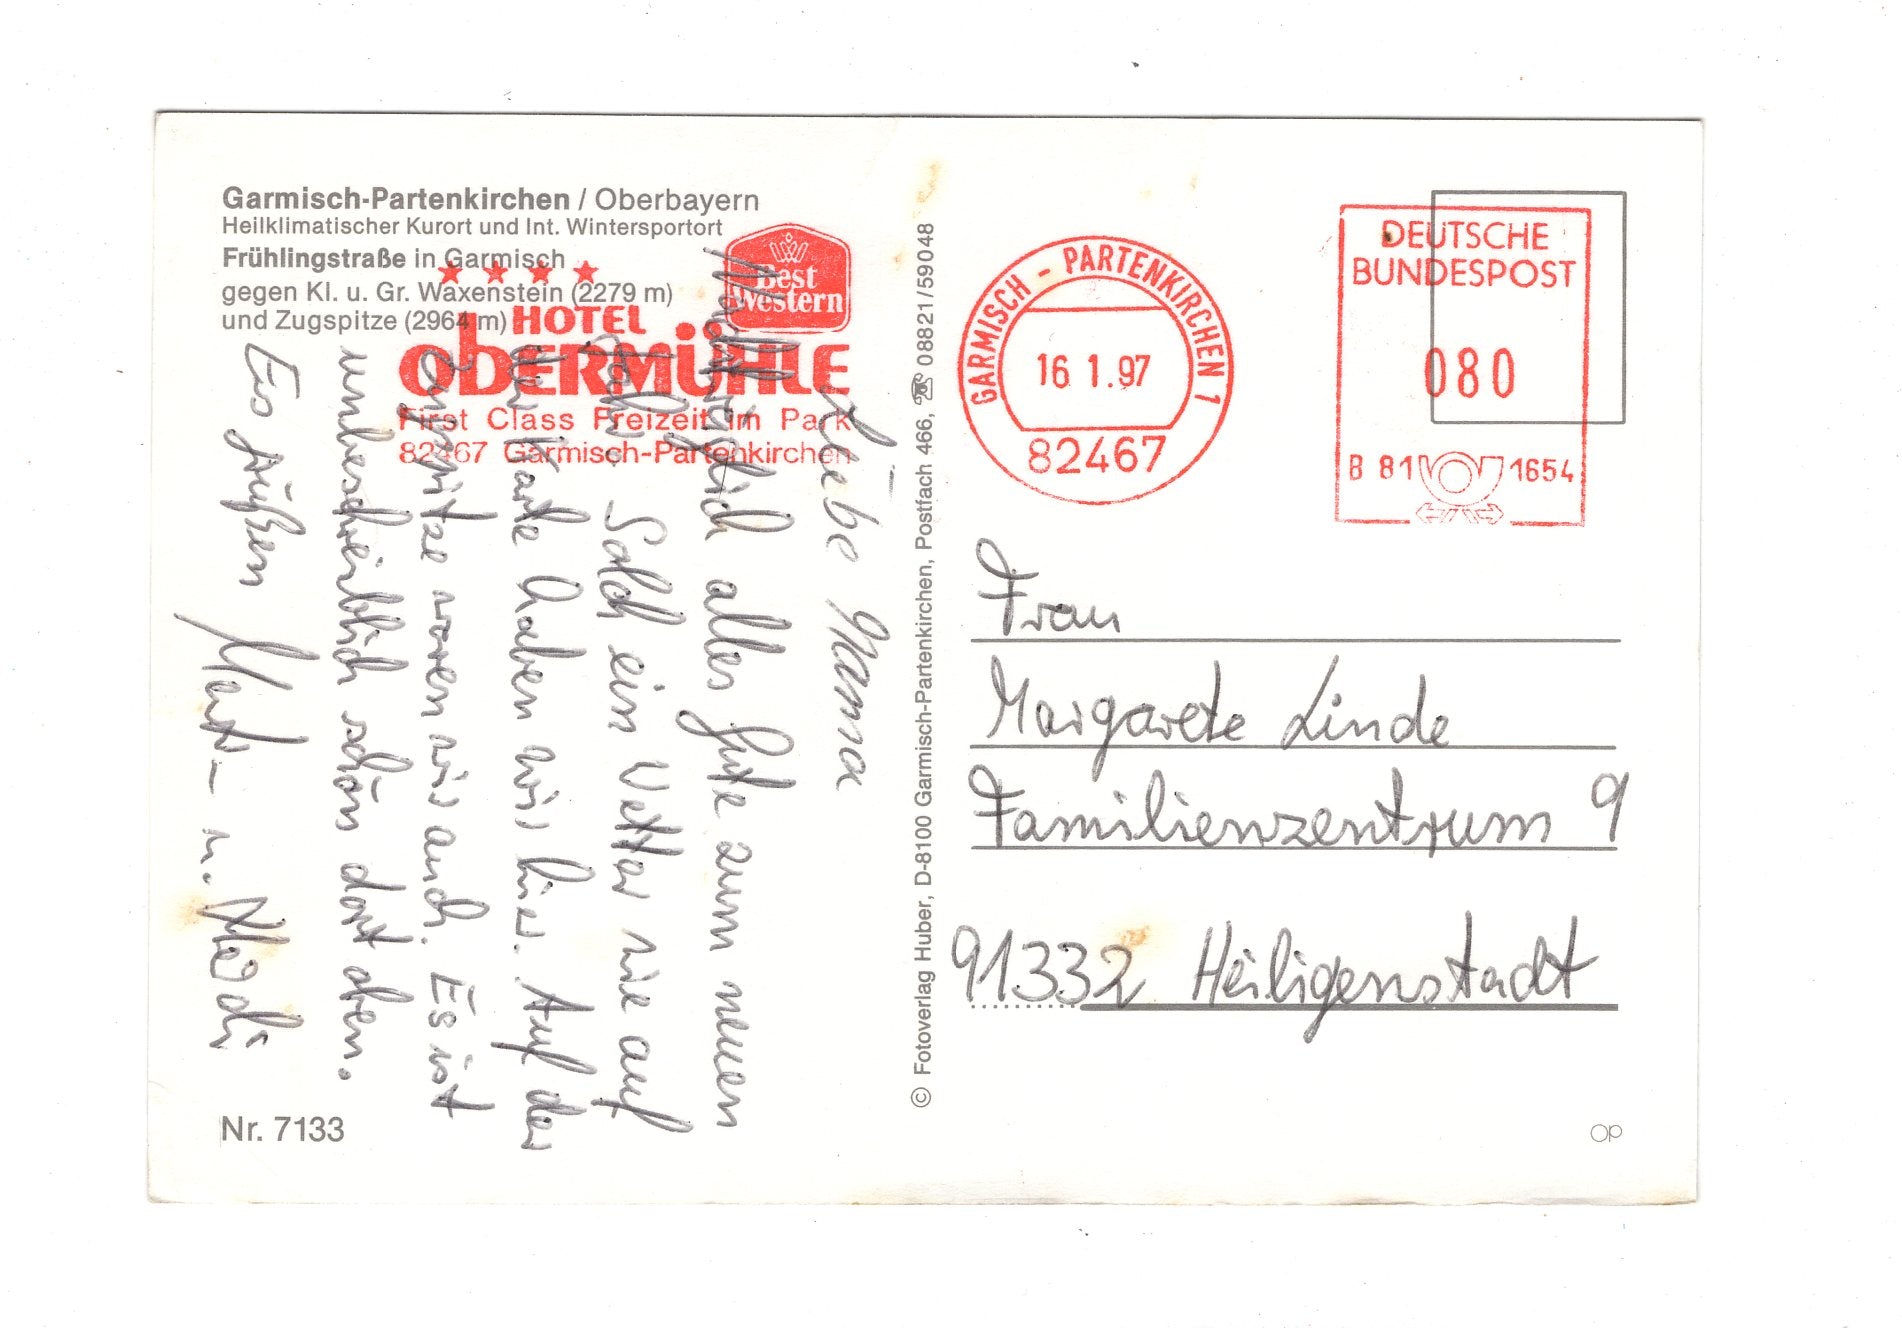 Garmisch-Partenkirchen / Oberbayern
Heilklimatischer Kurort und Int. Wintersportort
Frühlingstraße in Garmisch
gegen Kl. u. Gr. Waxenstein (2279 m)
und Zugspitze (2964 m)
Best
Western
HOTEL
obermühle
First Class Freizeit im Park
82467 Garmisch-Partenkirchen
Liebe Mama
Nachträglich alles Gute zum neuen
Jahr. Solch ein Wetter wie auf
der Karte haben wir hier. Auf der
Zugspitze waren wir auch. Es ist
unbeschreiblich schön dort oben.
Es grüßen
u.
Nr. 7133
© Fotoverlag Huber, D-8100 Garmisch-Partenkirchen, Postfach 466, ☏ 08821/59048
GARMISCH - PARTENKIRCHEN 1
16 1.97
82467
DEUTSCHE
BUNDESPOST
080
B 81 1654
Frau
Margarete Linde
Familienzentrum 9
91332 Heiligenstadt